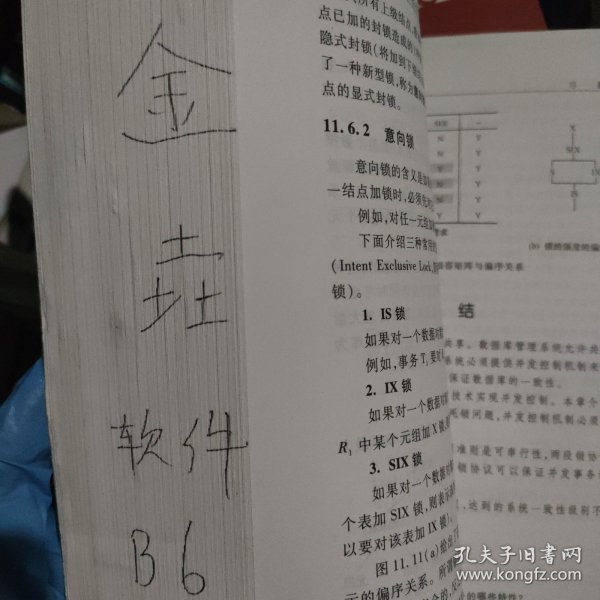 金
垚
软件
B6
所有上级结点
点已加的封锁造成的
隐式封锁(将加到下
了一种新型锁,称为意向
点的显式封锁。
11.6.2 意向锁
意向锁的含义是
一结点加锁时,必须先
例如,对任一元组加
下面介绍三种常用的
(Intent Exclusive Lock,
锁)。
1. IS 锁
如果对一个数据对
例如,事务T₁要对
2. IX 锁
如果对一个数据对
R₁ 中某个元组加 X 锁
3. SIX 锁
如果对一个数据对
个表加 SIX 锁,则表示
以要对该表加 IX 锁)
图 11.11(a)给出了
元的偏序关系。所谓
SIX
-
N
Y
N
Y
N
Y
N
Y
N
Y
Y
Y
X
SIX
S
(b) 锁的强度的偏
容矩阵与偏序关系
结
共享。数据库管理系统允许共
系统必须提供并发控制机制来
保证数据库的一致性。
技术实现并发控制。本章介
死锁问题,并发控制机制必须
准则是可串行性,两段锁协
锁协议可以保证并发事务
,达到的系统一致性级别不
的哪些特性?
孔夫子旧书网
www.kongfz.com